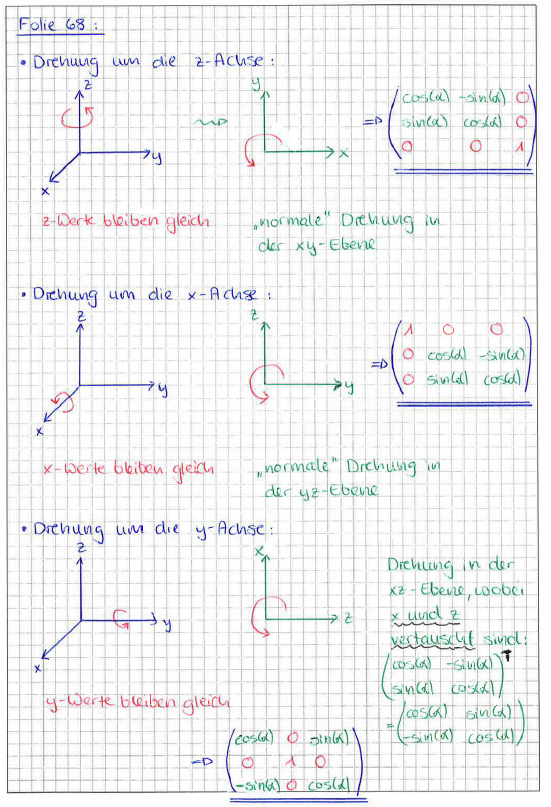 Folie 68:
• Drehung um die z-Achse:
z
y
x
y
x
=> (cos(α) -sin(α) 0
sin(α) cos(α) 0
0 0 1)
z-Werte bleiben gleich
„normale" Drehung in
der xy-Ebene
• Drehung um die x-Achse:
z
y
x
z
y
=> (1 0 0
0 cos(α) -sin(α)
0 sin(α) cos(α))
x-Werte bleiben gleich
„normale" Drehung in
der yz-Ebene
• Drehung um die y-Achse:
z
y
x
x
z
Drehung in der
xz-Ebene, wobei
x und z
vertauscht sind:
(cos(α) -sin(α)
sin(α) cos(α))T
= (cos(α) sin(α)
-sin(α) cos(α))
y-Werte bleiben gleich
=> (cos(α) 0 sin(α)
0 1 0
-sin(α) 0 cos(α))